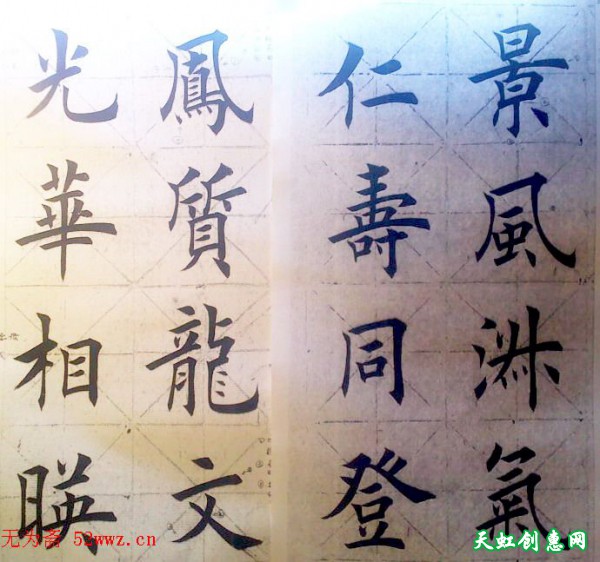 景風淑氣
仁壽同登
鳳質龍文
光華相暎
无为斋 52wwz.cn
天虹创惠网